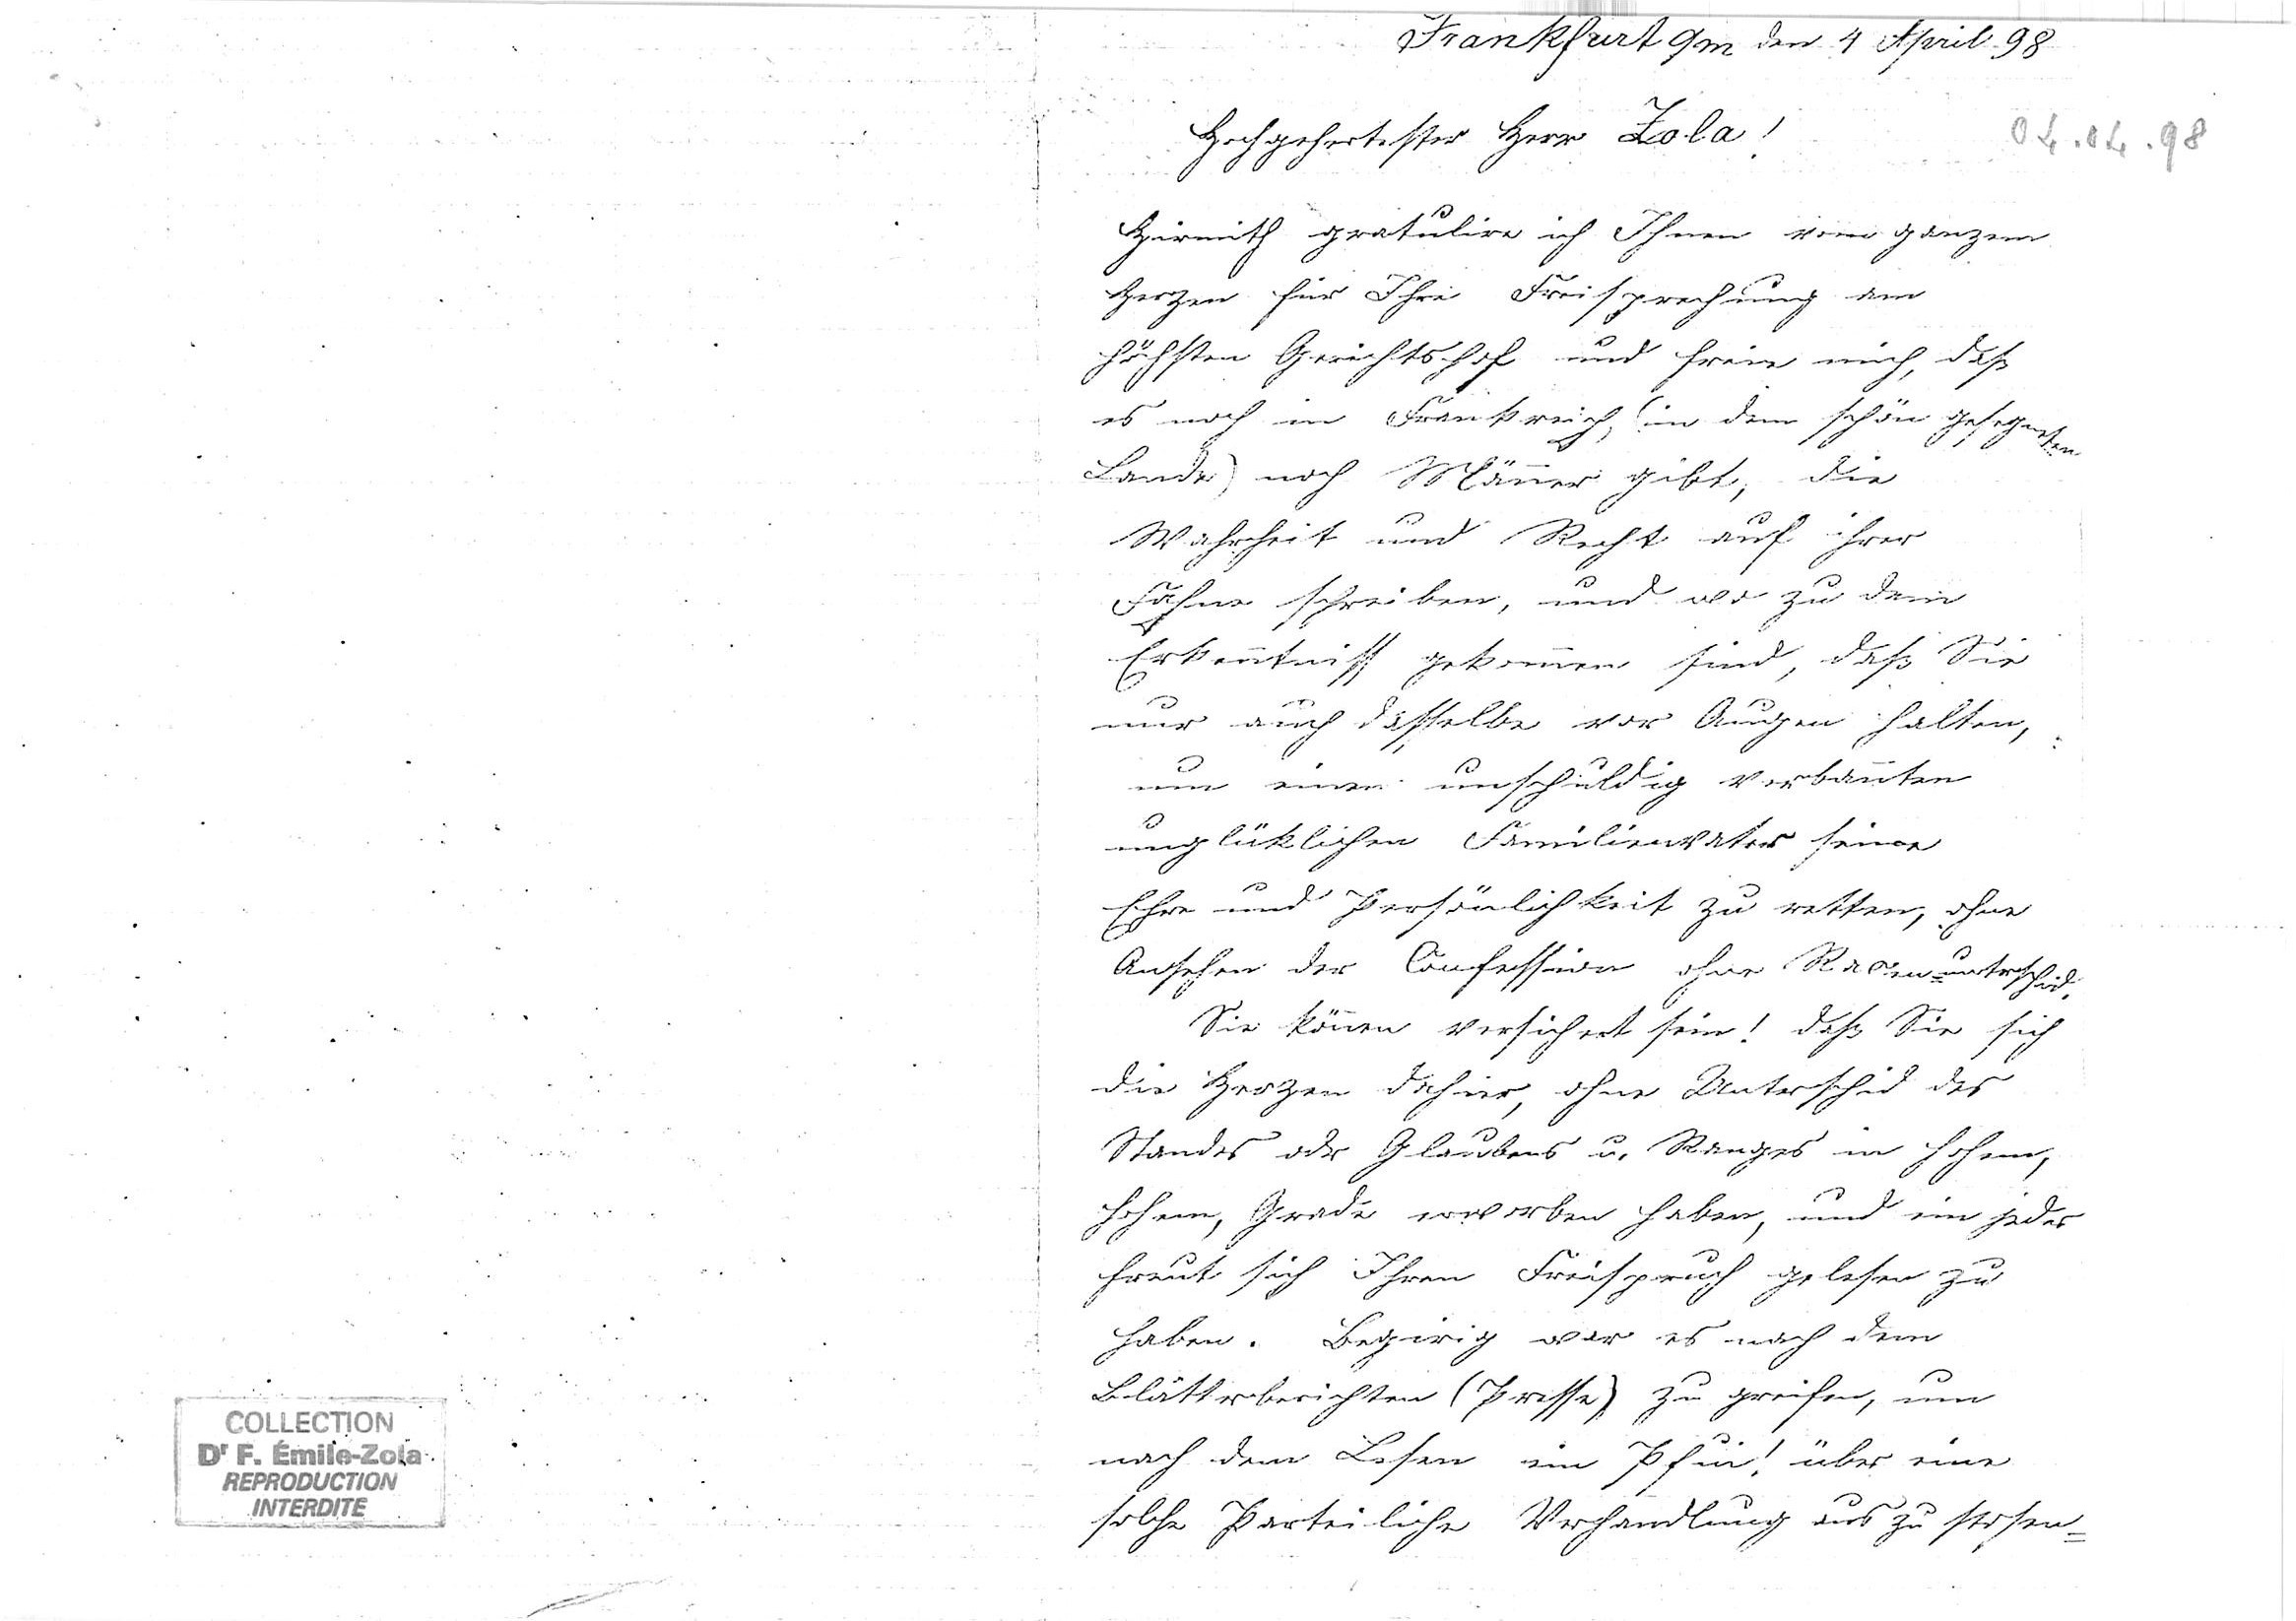 Frankfurt a/m den 4 April 98
04.04.98
Hochgehertester Herr Zola!
Hirmith gratulire ich Ihnen vom ganzem
Herzen für Ihre Freisprechung am
höchsten Gerichtshof und freie mich, daß
es noch in Frankreich, (in dem schön gesegneten
Lande) noch Mäñer gibt, die
Wahrheit und Recht auf ihrer
Fahne schreiben, und wo zu dem
Erkeñtniss gekom̄en sind, daß Sie
nur auch dasselbe vor Augen halten,
um einen unschuldig verbañten
unglüklichen Familienvater seine
Ehre und Persönlichkeit zu retten, ohne
Ansehen der Confession ohne Racen=unterschid.
Sie köñen versichert sein! daß Sie sich
die Herzen dahier, ohne Unterschid des
Standes oder Glaubens u. Ranges in hohem,
hohem, Grade erworben haben, und ein jeder
freut sich Ihren Freispruch gelesen zu
haben. Begirig war es nach dem
Blätterberichten (Presse) zu greifen, um
nach dem Lesen ein Pfui! über eine
solche Parteiliche Verhandlung aus zu stosen=
COLLECTION
Dr F. Émile-Zola
REPRODUCTION
INTERDITE